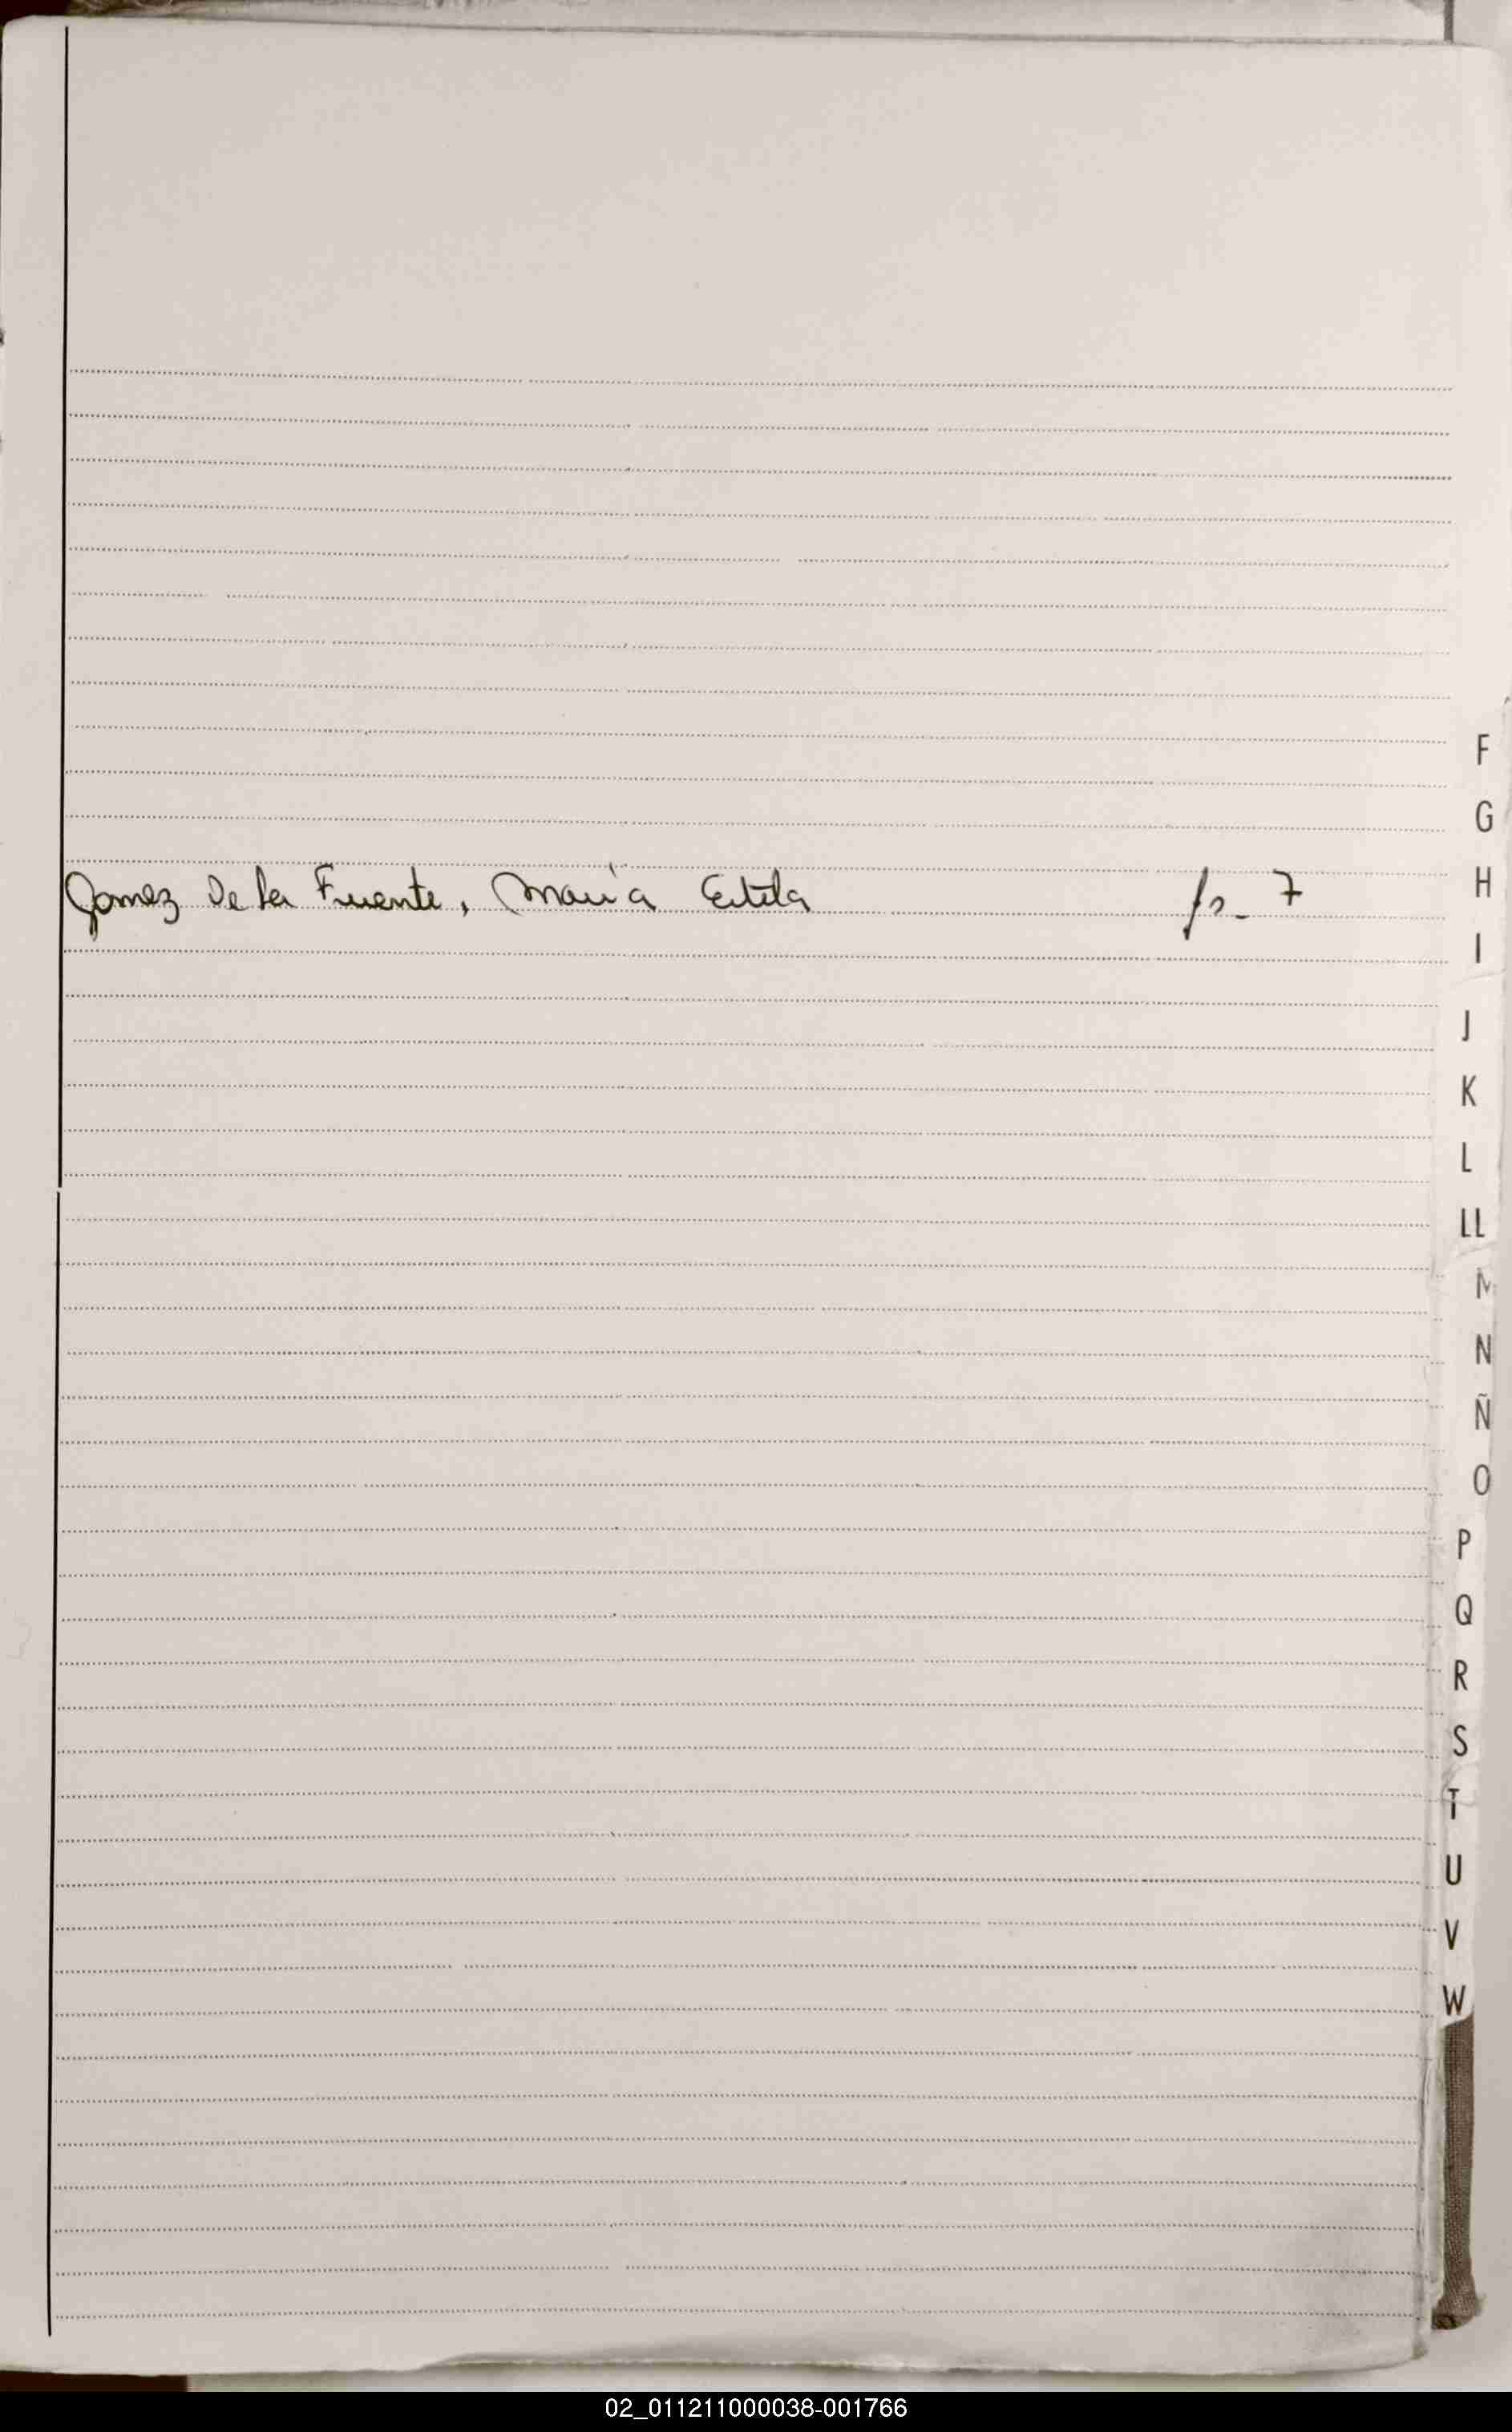 Gomez De la Fuente, María Estela fs_ 7
F
G
H
I
J
K
L
LL
M
N
Ñ
O
P
Q
R
S
T
U
V
W
02_011211000038-001766